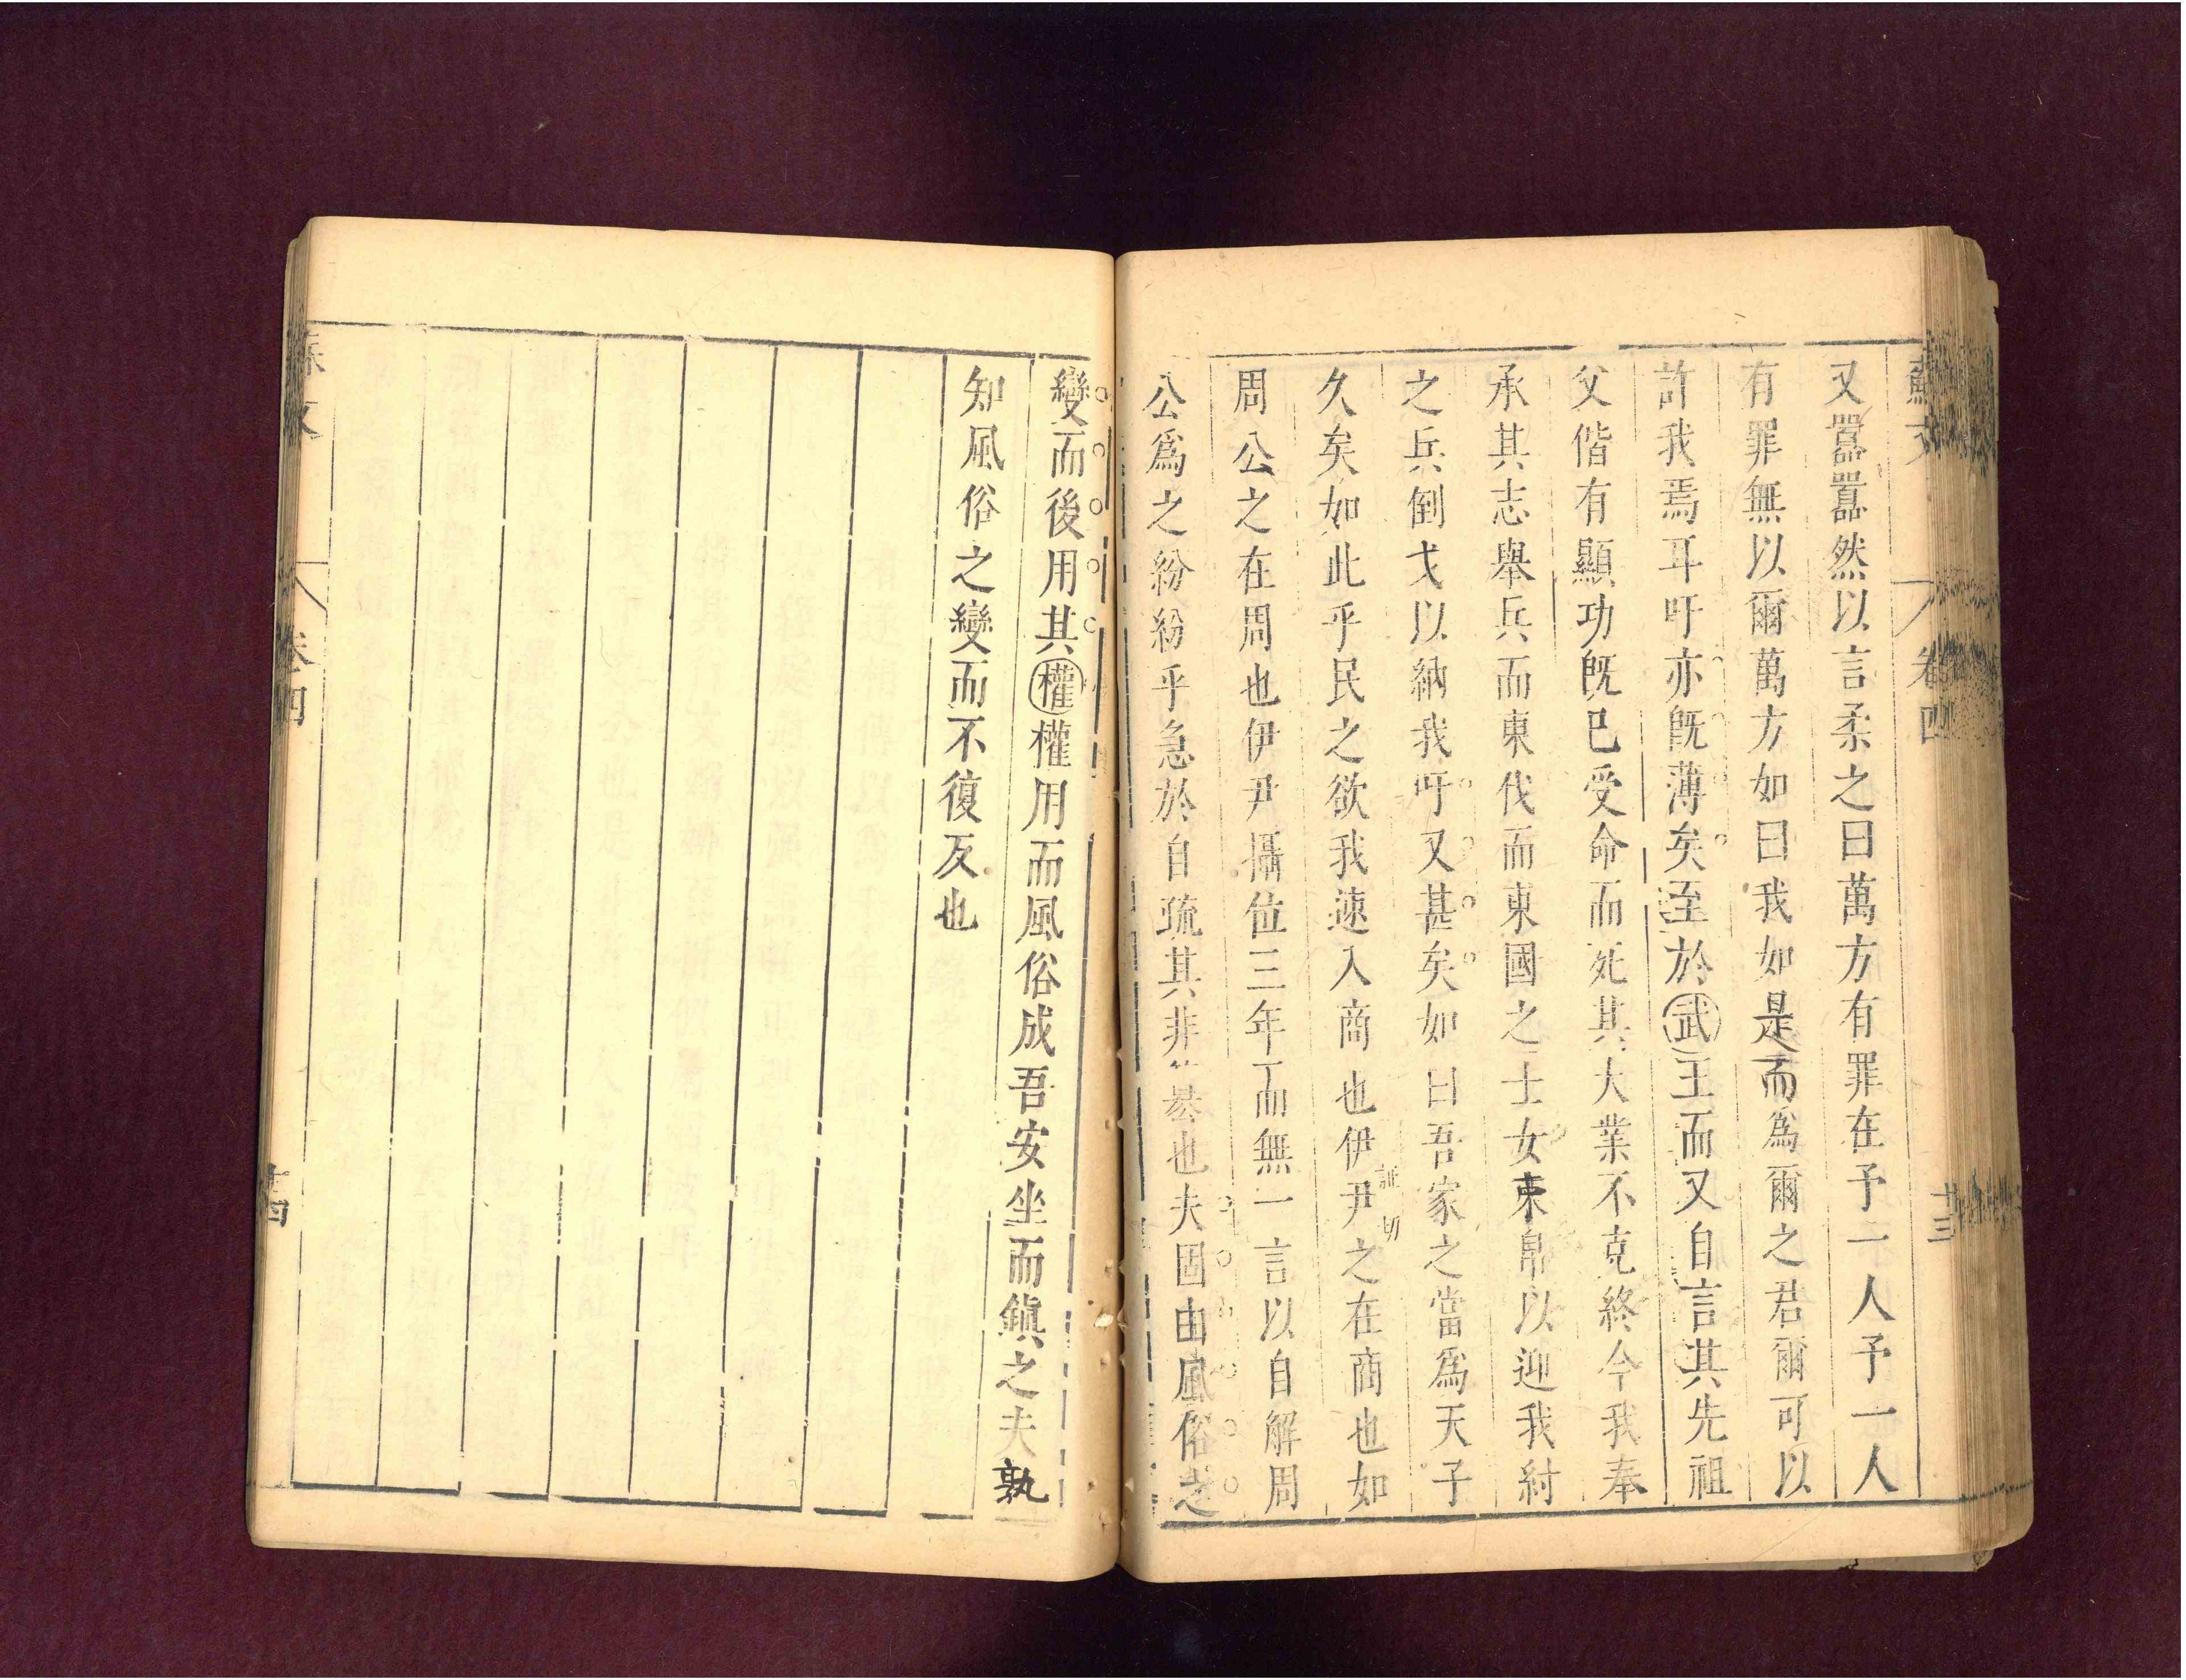 蘇文
卷四
十三
又囂囂然以言柔之曰萬方有罪在予一人予一人
有罪無以爾萬方如曰我如是而為爾之君爾可以
許我焉耳吁亦旣薄矣至於武王而又自言其先祖
父偕有顯功旣已受命而死其大業不克終今我奉
承其志舉兵而東伐而東國之士女束帛以迎我紂
之兵倒戈以納我吁又甚矣如曰吾家之當爲天子
久矣如此乎民之欲我速入商也伊尹之在商也如
切
周公之在周也伊尹攝位三年而無一言以自解周
公爲之紛紛乎急於自疏其非簒也夫固由風俗之
變而後用其權權用而風俗成吾安坐而鎭之夫孰
知風俗之變而不復反也
卷四